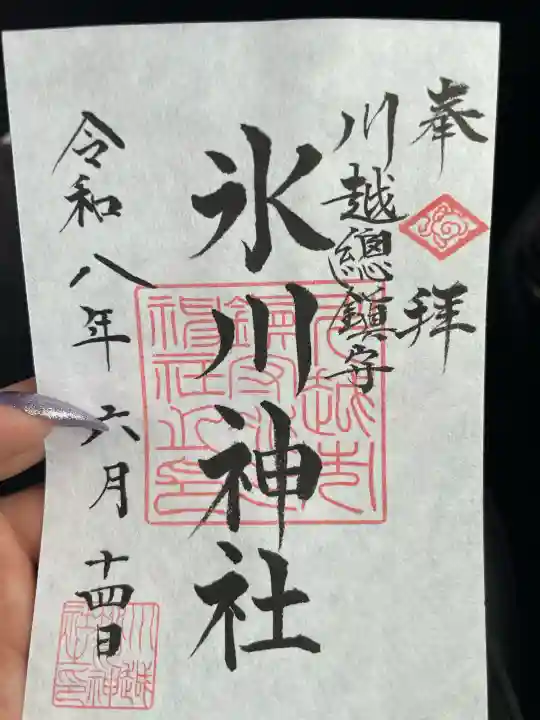 奉拝
川越總鎮守
氷川神社
令和八年六月十四日